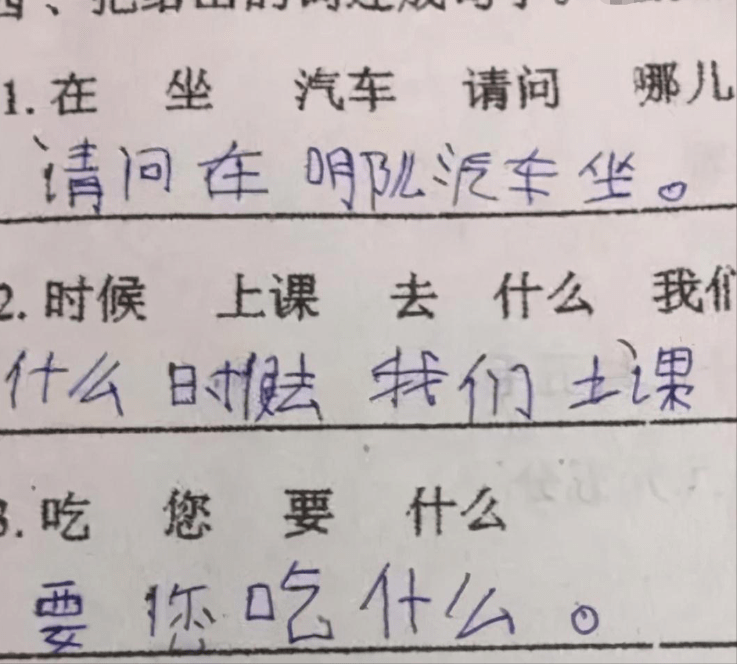 四、把给出的词连成句子。
1. 在 坐 汽车 请问 哪儿
请问在 哪儿汽车坐。
2. 时候 上课 去 什么 我们
什么 时候去 我们 上课
3. 吃 您 要 什么
要 您 吃 什么。